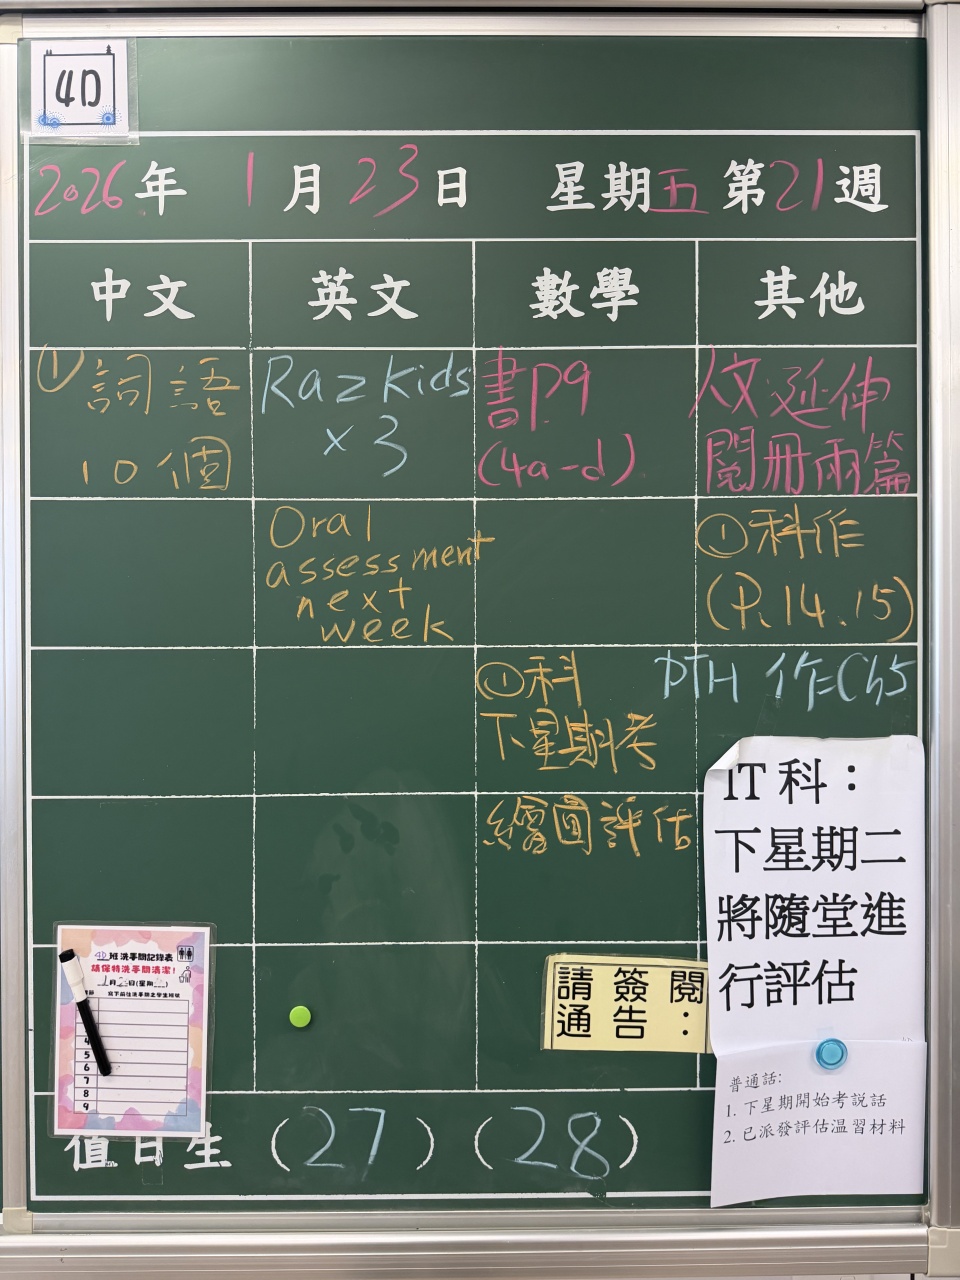 4D
2026年 1月23日 星期五 第21週
中文 英文 數學 其他
①詞語
10個
Raz Kids
x 3
書P9
(4a-d)
人文延伸
閱冊兩篇
Oral
assessment
next
week
①科作
(P.14、15)
①科
下星期考
PTH 作 Ch5
繪圖評估
IT 科：
下星期二
將隨堂進
行評估
請簽閱
通告：
普通話:
1. 下星期開始考說話
2. 已派發評估温習材料
4D班洗手間記錄表
請保持洗手間清潔!
4
5
6
7
8
9
值日生 (27) (28)